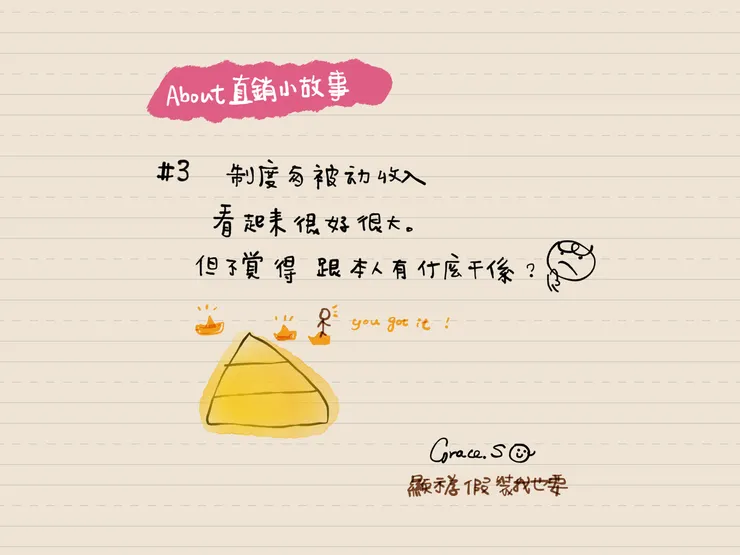 About直銷小故事
#3 制度有被动收入
看起來很好很大。
但不覺得 跟本人有什麼干係?
you got it !
Grace.S
假裝我也要